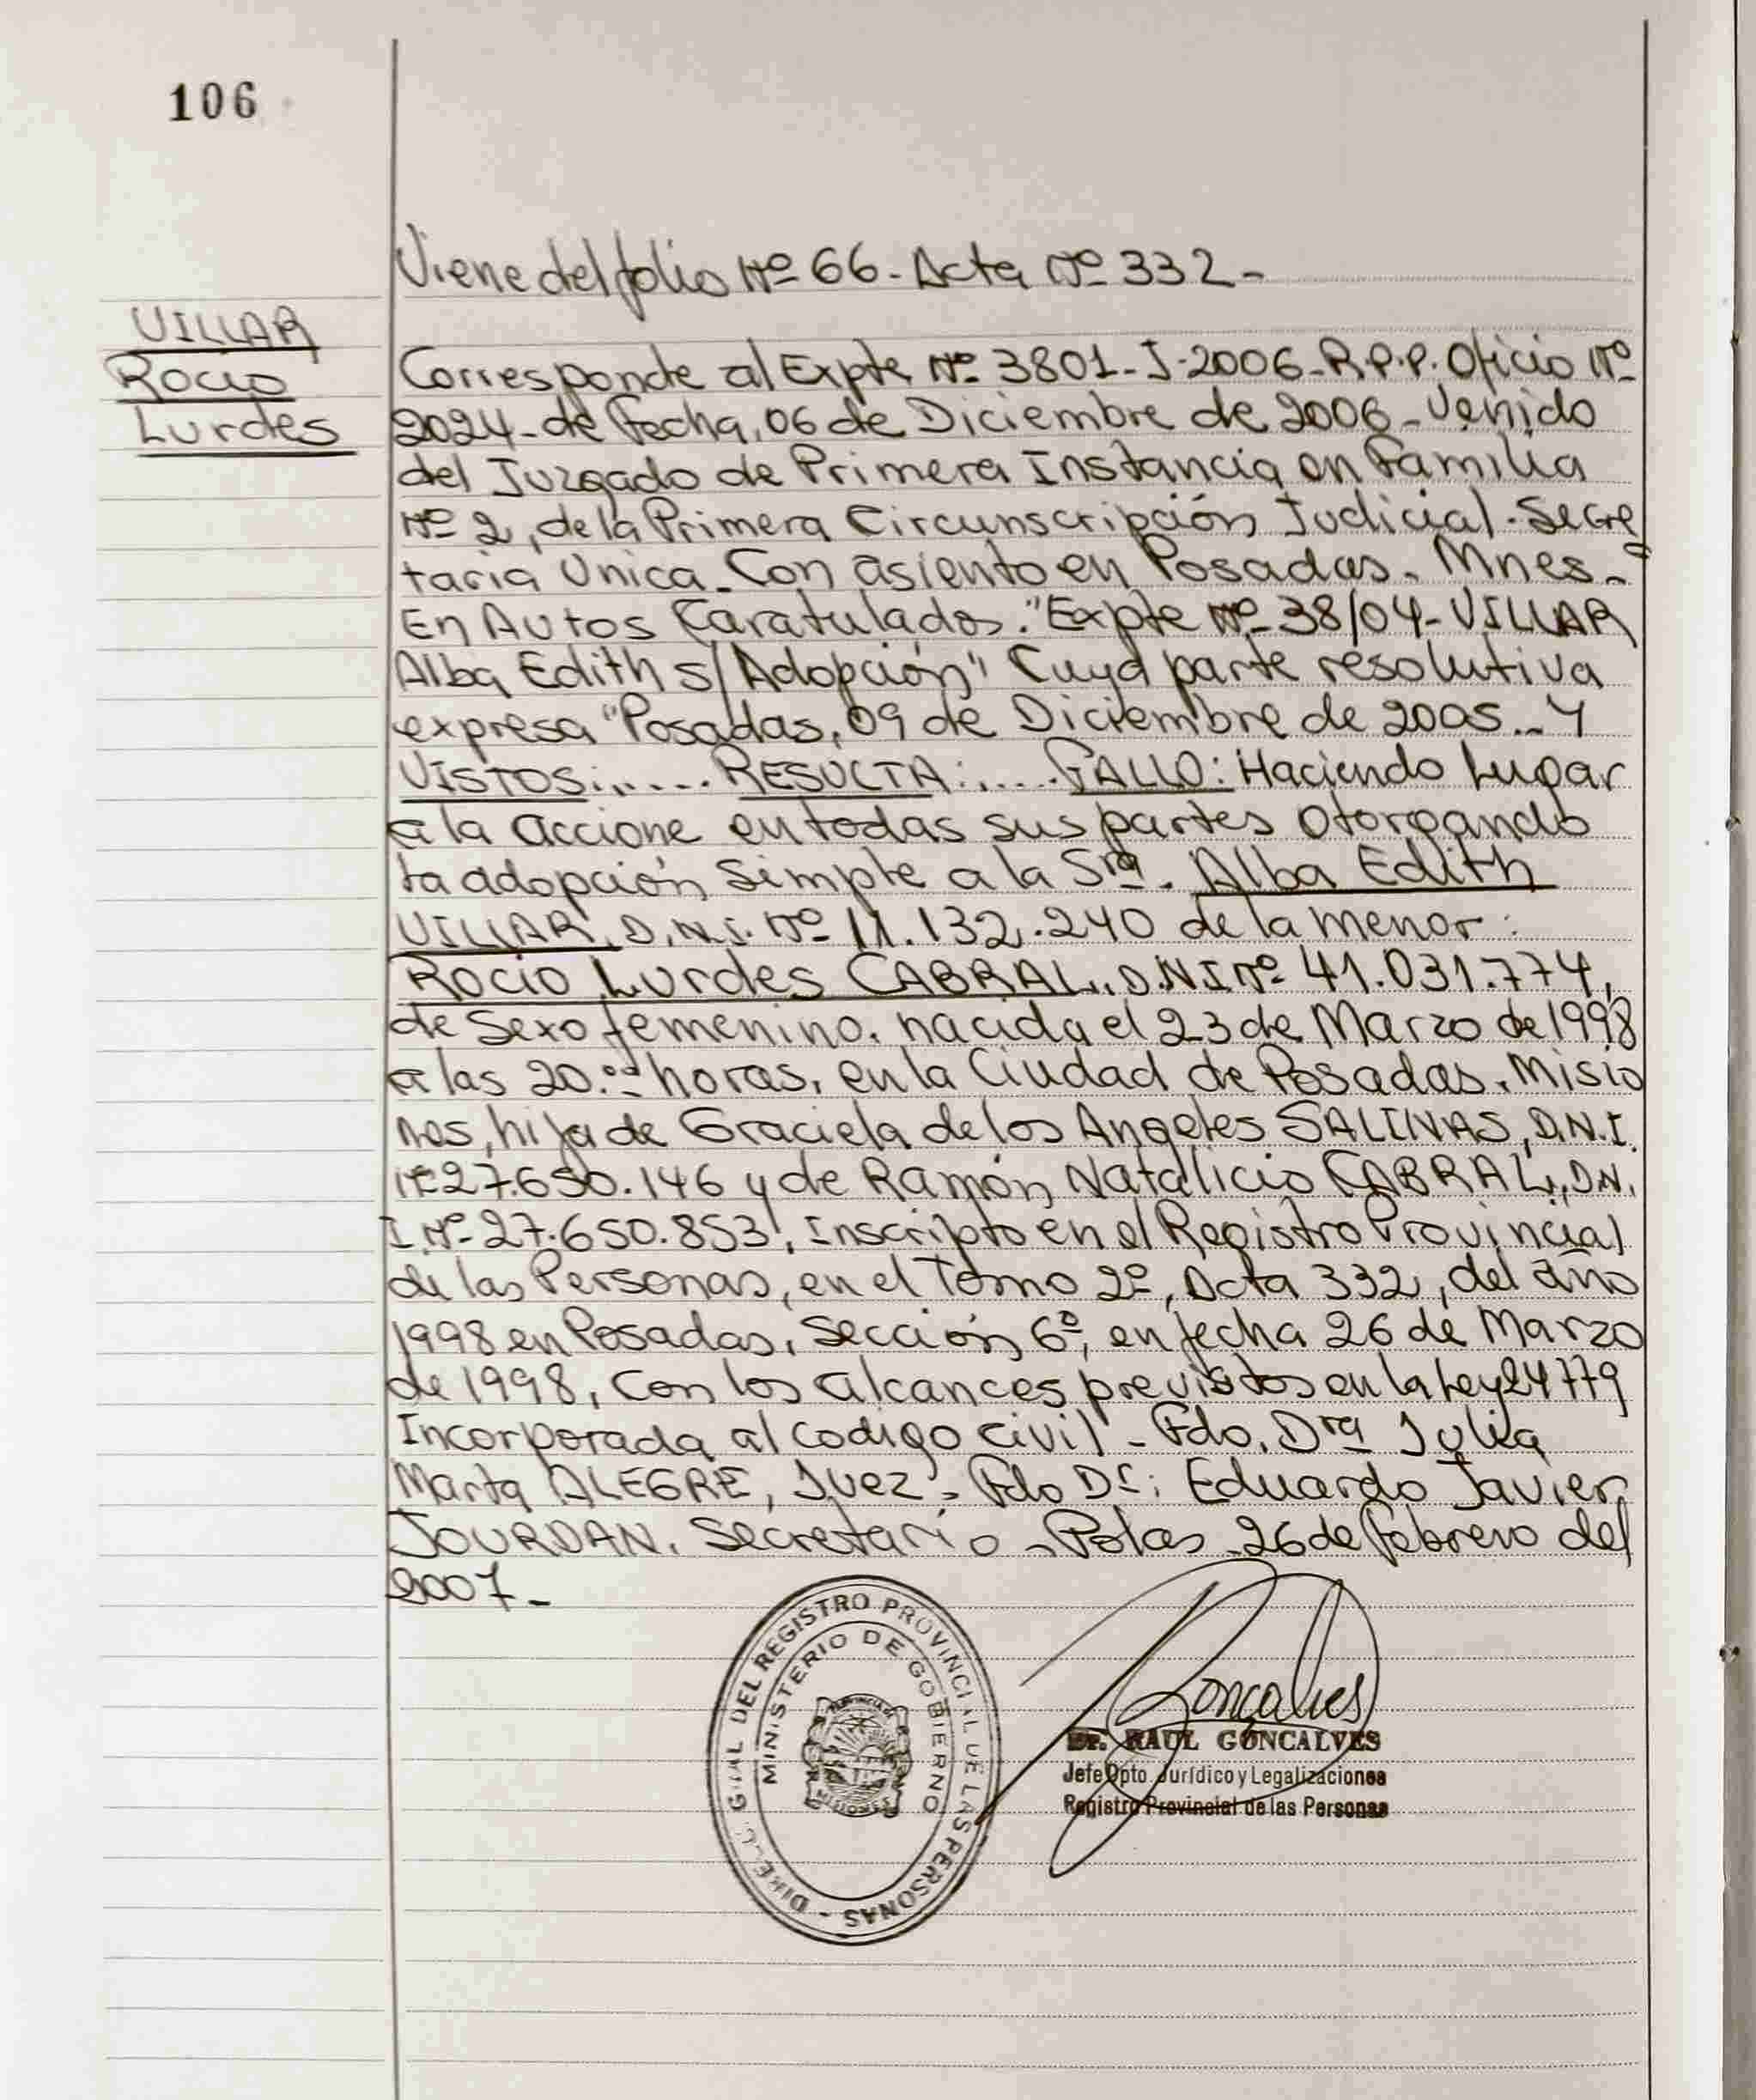 106
Viene del folio Nº 66- Acta Nº 332-
VILLAR
Rocio
Lurdes
Corresponde al Expte Nº 3801-J-2006-R.P.P. Oficio Nº
2024-de fecha, 06 de Diciembre de 2006-Venido
del Juzgado de Primera Instancia en Familia
Nº 2, de la Primera Circunscripción Judicial-Secre
taria Unica-Con asiento en Posadas-Mnes-
En Autos Caratulados: "Expte Nº 38/04-VILLAR
Alba Edith s/Adopción" Cuya parte resolutiva
expresa "Posadas, 09 de Diciembre de 2005-Y
VISTOS:..... RESULTA:.... FALLO: Haciendo Lugar
a la accione en todas sus partes otorgando
la adopción simple a la Sra. Alba Edith
VILLAR, D.N.I. Nº 11.132.240 de la menor:
Rocio Lurdes CABRAL, D.N.I Nº 41.031.774,
de sexo femenino, nacida el 23 de Marzo de 1998
a las 20. horas, en la Ciudad de Posadas, Misio
nes, hija de Graciela de los Angeles SALINAS, D.N.I.
Nº 27.650.146 y de Ramón Natalicio CABRAL, D.N.
I. Nº-27.650.853, Inscripto en el Registro Provincial
de las Personas, en el Tomo 2º, Acta 332, del año
1998 en Posadas, Sección 6º, en fecha 26 de Marzo
de 1998, Con los alcances previstos en la Ley 24779
Incorporada al codigo civil-Fdo. Dra Julia
Marta ALEGRE, Juez-Fdo Dr: Eduardo Javier
JOURDAN. Secretario- 26 de febrero del
2007-
DIREC. GRAL DEL REGISTRO PROVINCIAL DE LAS PERSONAS -
MINISTERIO DE GOBIERNO
PROVINCIA DE
MISIONES
Goncalves
Dr. RAUL GONCALVES
Jefe Dpto. Jurídico y Legalizaciones
Registro Provincial de las Personas